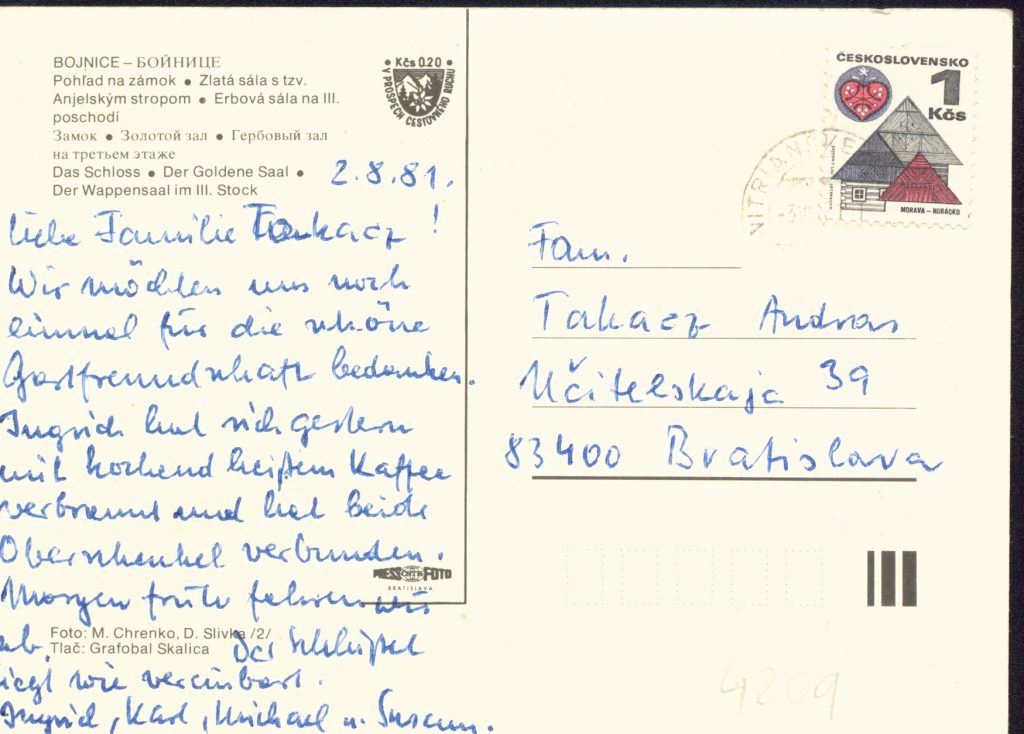 BOJNICE – БОЙНИЦЕ
Pohľad na zámok ● Zlatá sála s tzv.
Anjelským stropom ● Erbová sála na III.
poschodí
Замок ● Золотой зал ● Гербовый зал
на третьем этаже
Das Schloss ● Der Goldene Saal ●
Der Wappensaal im III. Stock
• Kčs 0.20 •
V PROSPECH CESTOVNÉHO RUCHU
2.8.81.
Liebe Familie Takacz!
Wir möchten uns noch
einmal für die schöne
Gastfreundschaft bedanken.
Ingrid hat sich gestern
mit kochend heißem Kaffee
verbrannt und hat beide
Oberschenkel verbunden.
Morgen früh fahren wir
ab. Der Schlüssel
liegt wie vereinbart.
Ingrid, Karl, Michael u. Susann.
PRESSFOTO
BRATISLAVA
Foto: M. Chrenko, D. Slivka /2/
Tlač: Grafobal Skalica
ČESKOSLOVENSKO
1
Kčs
MORAVA – HORÁCKO
NITRIANSKE
Fam.
Takacz Andras
Učitelskaja 39
83400 Bratislava
4209